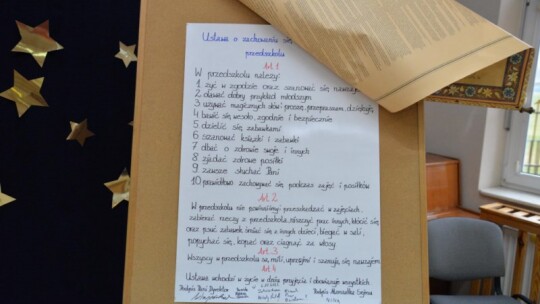 Ustawa o zachowaniu się
przedszkolu
Art. 1
W przedszkolu należy:
1 żyć w zgodzie oraz szanować się nawzajem
2 dawać dobry przykład młodszym
3 używać magicznych słów: proszę, przepraszam, dziękuję
4 bawić się wesoło, zgodnie i bezpiecznie
5 dzielić się zabawkami
6 szanować książki i zabawki
7 dbać o zdrowie swoje i innych
8 zjadać zdrowe posiłki
9 zawsze słuchać Pani
10 prawidłowo zachowywać się podczas zajęć i posiłków
Art. 2
W przedszkolu nie powinniśmy: przeszkadzać w zajęciach,
zabierać rzeczy z przedszkola, niszczyć prac innych, kłócić się
oraz psuć zabawek, śmiać się z innych dzieci, biegać w sali,
popychać się, kopać oraz ciągnąć za włosy
Art. 3
Wszyscy w przedszkolu są mili, uprzejmi i szanują się nawzajem
Art. 4
Ustawa wchodzi w życie w dniu przyjęcia i obowiązuje wszystkich
Podpis Pani Dyrektor
Podpis Marszałka Sejmu